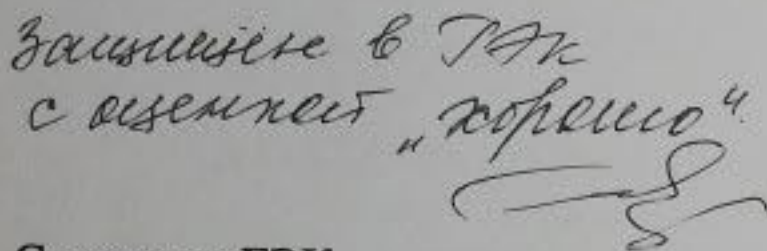 Защищен в ГЭК
с оценкой „хорошо“